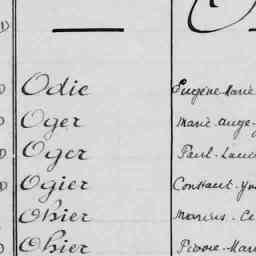 Odie Eugène Marie
Oger Marie Ange
Oger Paul
Ogier Constant
Ohier Marius
Ohier Pierre Marie